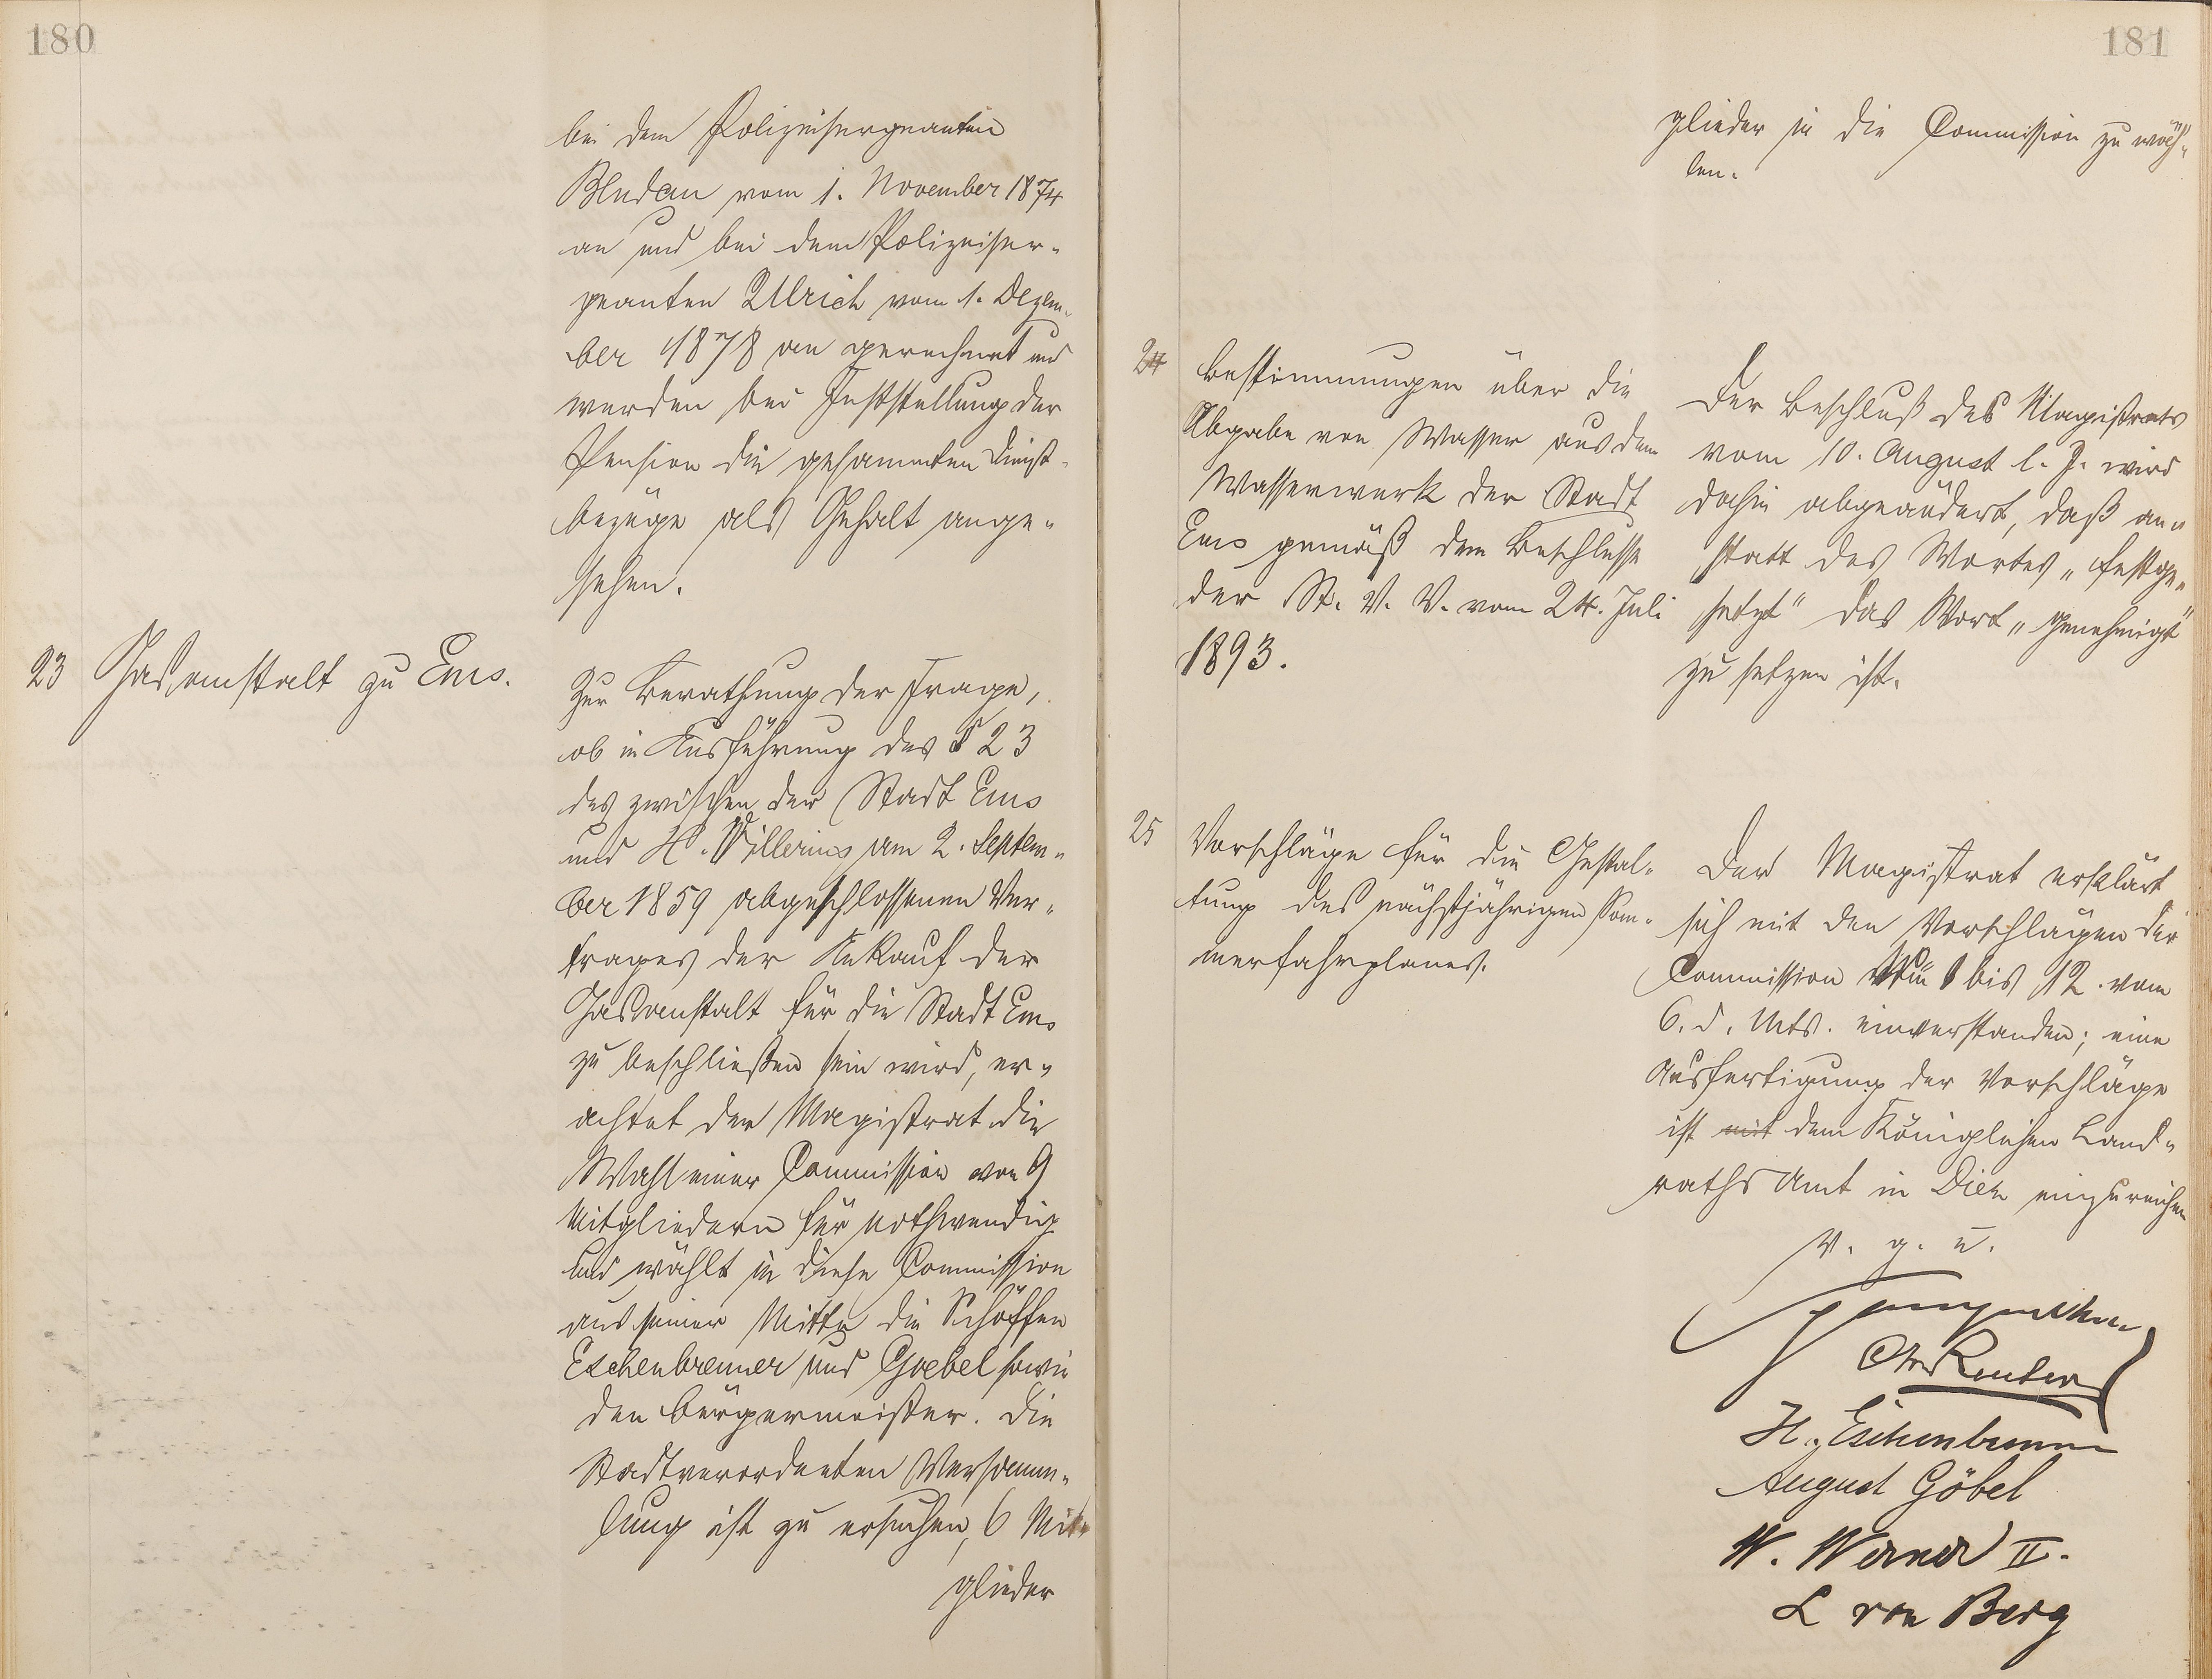 180
bei dem Polizeisergeanten
Bludau vom 1. November 1874
an und bei dem Polizeiser-
geanten Ulrich vom 1. Dezem-
ber 1878 an gerechnet und
werden bei Feststellung der
Pension die gesammten Dienst-
bezüge als Gehalt ange-
sehen.
23 Gasanstalt zu Ems.
Zur Berathung der Frage,
ob in Ausführung des § 23
des zwischen der Stadt Ems
und H. am 2. Septem-
ber 1859 abgeschlossenen Ver-
trages der Ankauf der
Gasanstalt für die Stadt Ems
zu beschließen sein wird, er-
achtet der Magistrat die
Wahl einer Commission von 9
Mitgliedern für nothwendig
und wählt in diese Commission
aus seiner Mitte die Schöffen
Eschenbrenner und Goebel sowie
den Bürgermeister. Die
Stadtverordneten Versamm-
lung ist zu ersuchen, 6 Mit-
glieder
181
glieder in die Commission zu wäh-
len.
24 Bestimmungen über die
Abgabe von Wasser aus dem
Wasserwerk der Stadt
Ems gemäß dem Beschlusse
der St. V. V. vom 24. Juli
1893.
Der Beschluß des Magistrats
vom 10. August l. J. wird
dahin abgeändert, daß an-
statt des Wortes „festge-
setzt" das Wort „genehmigt"
zu setzen ist.
25 Vorschläge für die Gestal-
tung des nächstjährigen Som-
merfahrplanes.
Der Magistrat erklärt
sich mit den Vorschlägen der
Commission 1 bis 12. vom
6. d. Mts. einverstanden; eine
Ausfertigung der Vorschläge
ist mit dem Königlichen Land-
raths Amt in Diez einzureichen
V. g. u.
Chr. Reuter
H. Eschenbrenner
August Göbel
W. Werner II.
L von Berg